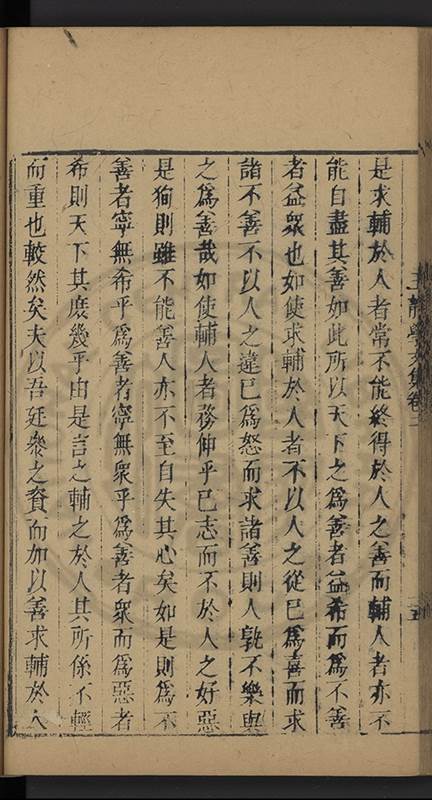 是求輔於人者常不能終得於人之善而輔人者亦不
能自盡其善如此所以天下之爲善者益希而爲不善
者益衆也如使求輔於人者不以人之從已爲喜而求
諸不善不以人之違已爲怒而求諸善則人孰不樂與
之爲善哉如使輔人者務伸乎已志而不於人之好惡
是狥則雖不能善人亦不至自失其心矣如是則爲不
善者寧無希乎爲善者寧無衆乎爲善者衆而爲惡者
希則天下其庶幾乎由是言之輔之於人其所係不輕
而重也較然矣夫以吾廷粲之資而加以善求輔於人